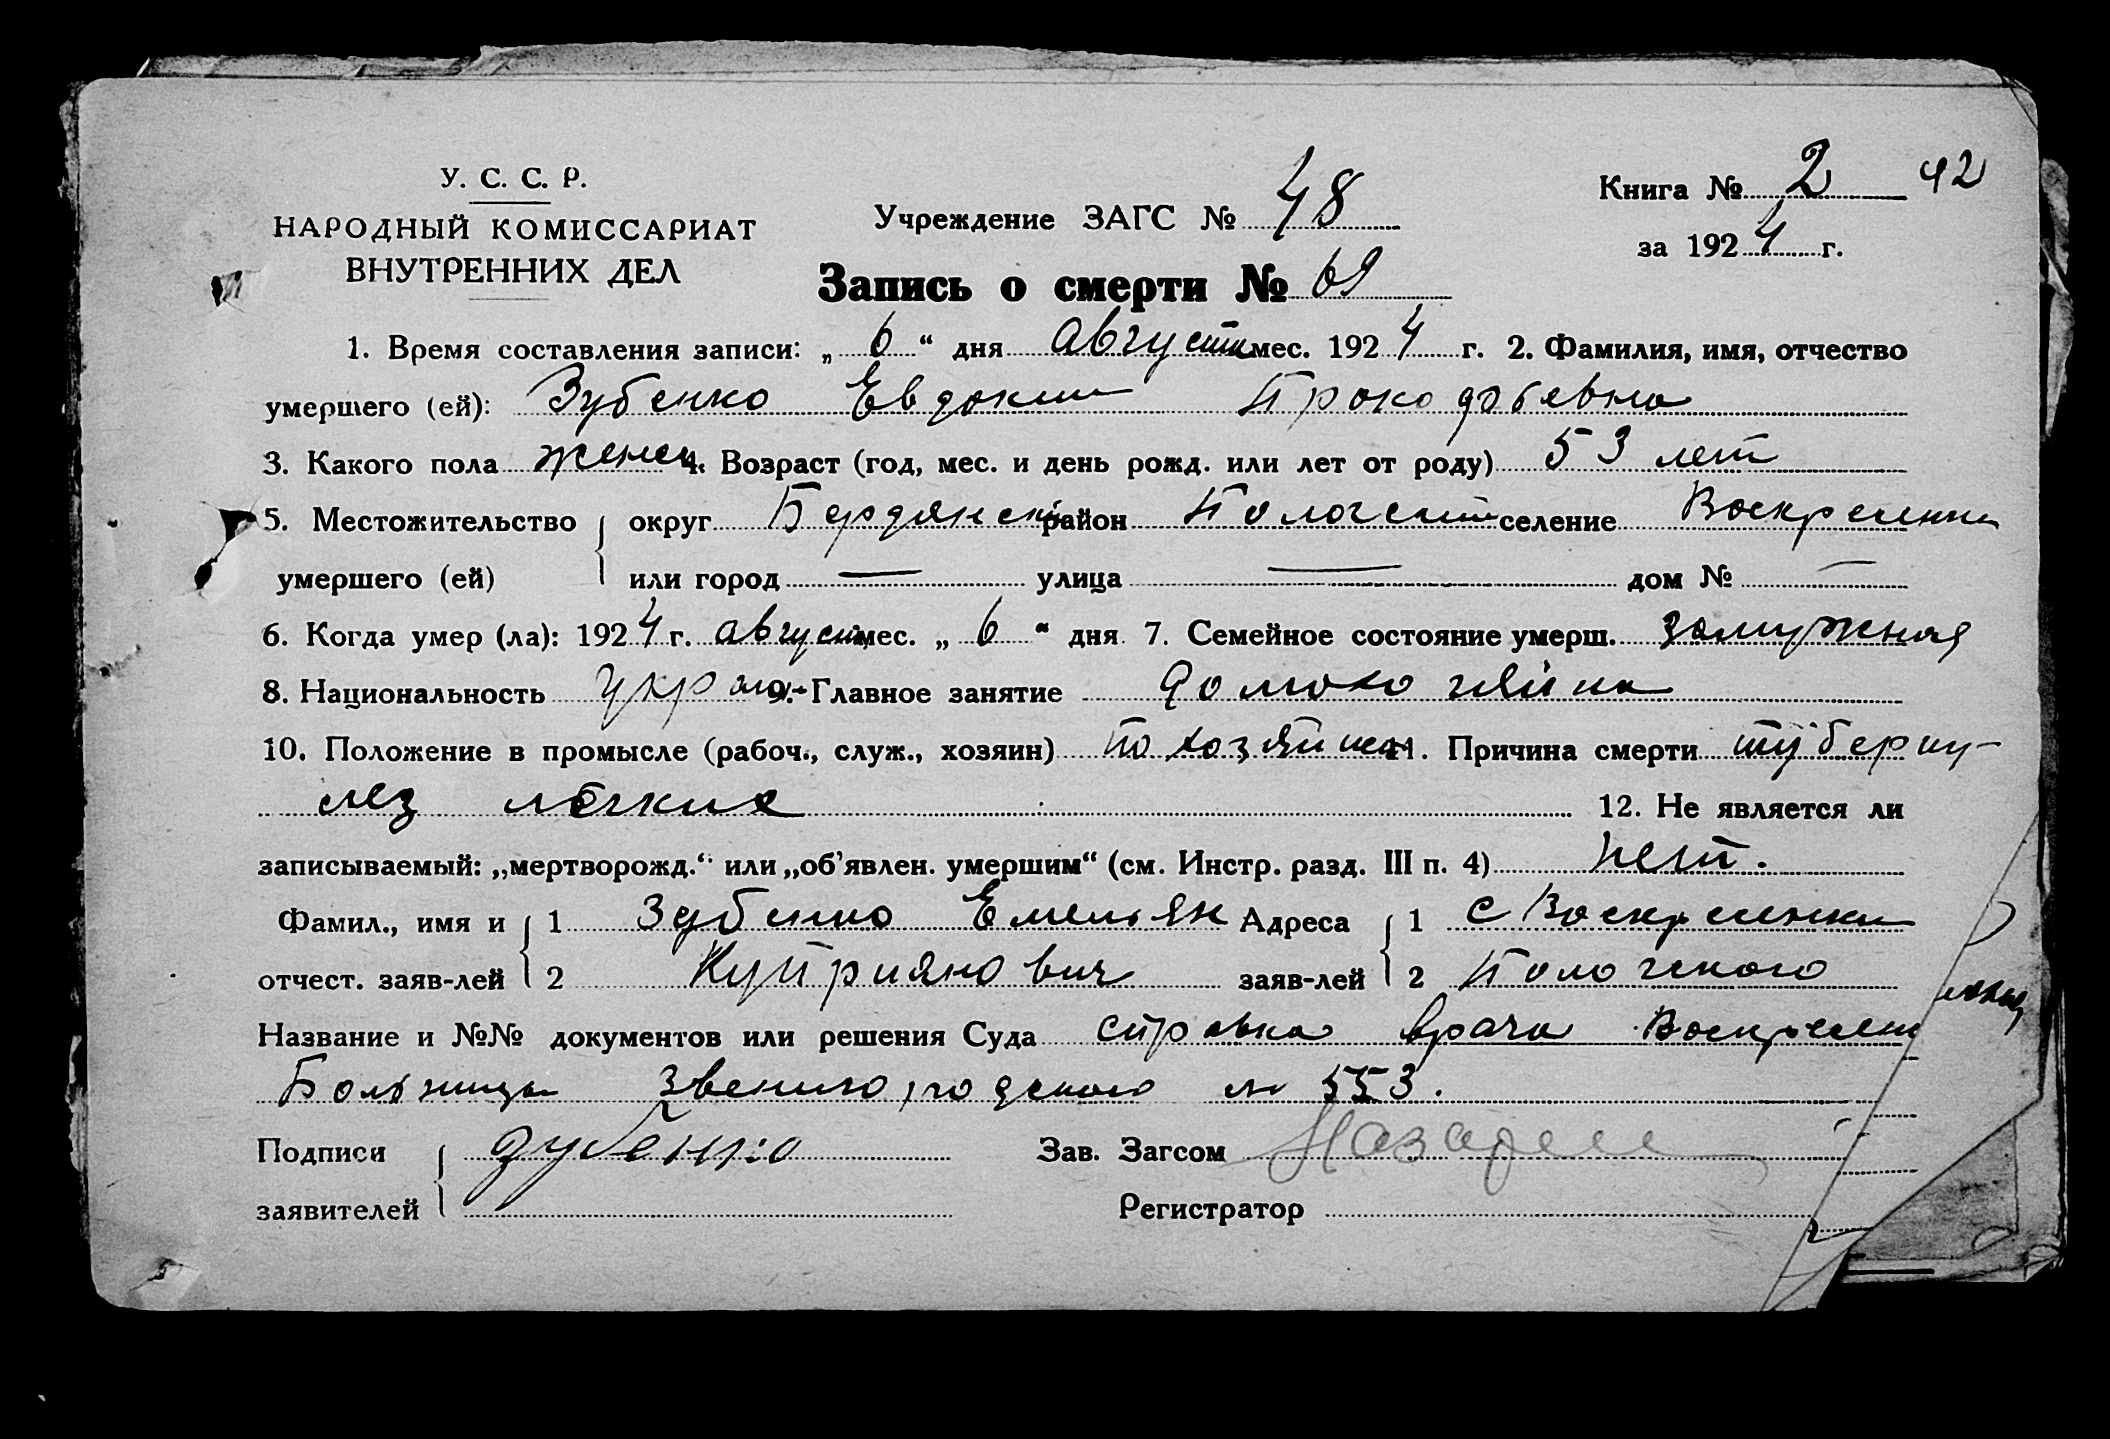 У. С. С. Р.
НАРОДНЫЙ КОМИССАРИАТ
ВНУТРЕННИХ ДЕЛ
Учреждение ЗАГС № 48
Книга № 2 42
за 1924 г.
Запись о смерти № 69
1. Время составления записи: „ 6 “ дня август мес. 1924 г. 2. Фамилия, имя, отчество
умершего (ей): Зубенко Евдокия
3. Какого пола женск 4. Возраст (год, мес. и день рожд. или лет от роду) 53 лет
5. Местожительство округ Бердянский район Пологский селение Воскресенка
умершего (ей) или город — улица — дом № —
6. Когда умер (ла): 1924 г. август мес. „ 6 “ дня 7. Семейное состояние умерш. замужняя
8. Национальность укра 9. Главное занятие домохозяйка
10. Положение в промысле (рабоч., служ., хозяин) 11. Причина смерти туберку-
лез легких
12. Не является ли
записываемый: „мертворожд.“ или „об'явлен. умершим“ (см. Инстр. разд. III п. 4) нет.
Фамил., имя и 1 Зубенко Емельян Адреса 1 с Воскресенка
отчест. заяв-лей 2 Куприянович заяв-лей 2 Пологского
Название и №№ документов или решения Суда справка врача Воскресен
Больницы № 553.
Подписи Зубенко Зав. Загсом
заявителей Регистратор